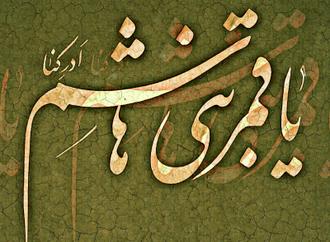 یا قمر بنی هاشم
اَدرِکنا